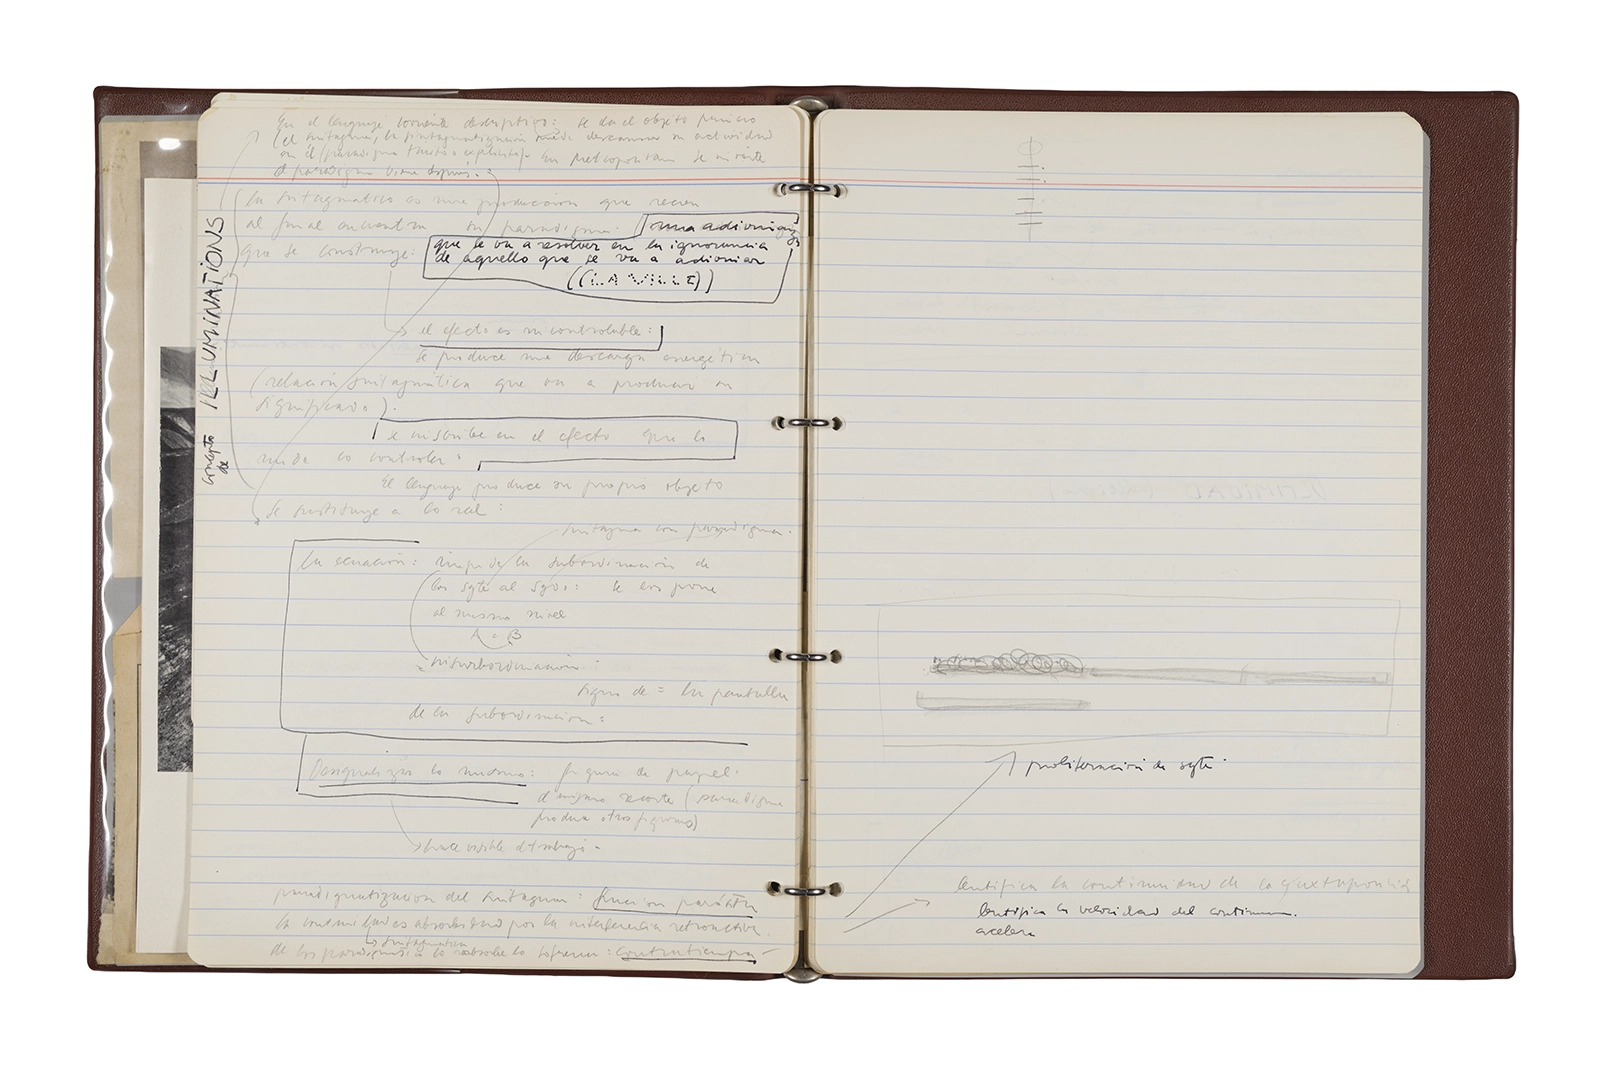 En el lenguaje corriente descriptivo: se da el objeto primero
(el sintagma, la sintagmatización puede descansar su actividad
en él (paradigma tácito o explícito). En Metropolitain se invierte
el paradigma viene después.
lo sintagmático es una producción que recién
al final encuentra su paradigma: una adivinanza
que se construye: que se va a resolver en la ignorancia
de aquello que se va a adivinar
((LA VILLE))
concepto de ILLUMINATIONS
el efecto es incontrolable:
se produce una descarga energética
(relación sintagmática que va a producir su
significado).
se inscribe en el efecto que lo
controlar.
El lenguaje produce su propio objeto
se sustituye a lo real:
sintagma con paradigma.
la ecuación: impide la subordinación de
los sgte al sgdo: se los pone
al mismo nivel
A = B
insubordinación:
signo de = la pantalla
de la subordinación:
Desigualizar lo mismo: figura de papel.
el mismo recorte (paradigma
produce otras figuras)
hace visible el trabajo.
paradigmatización del sintagma: función
la continuidad es absorbida por la interferencia retroactiva.
sintagmática
de los : contratiempo
proliferación de sgte.
lentifica la continuidad de lo yuxtapuesto
lentifica la velocidad del continuum.
acelera